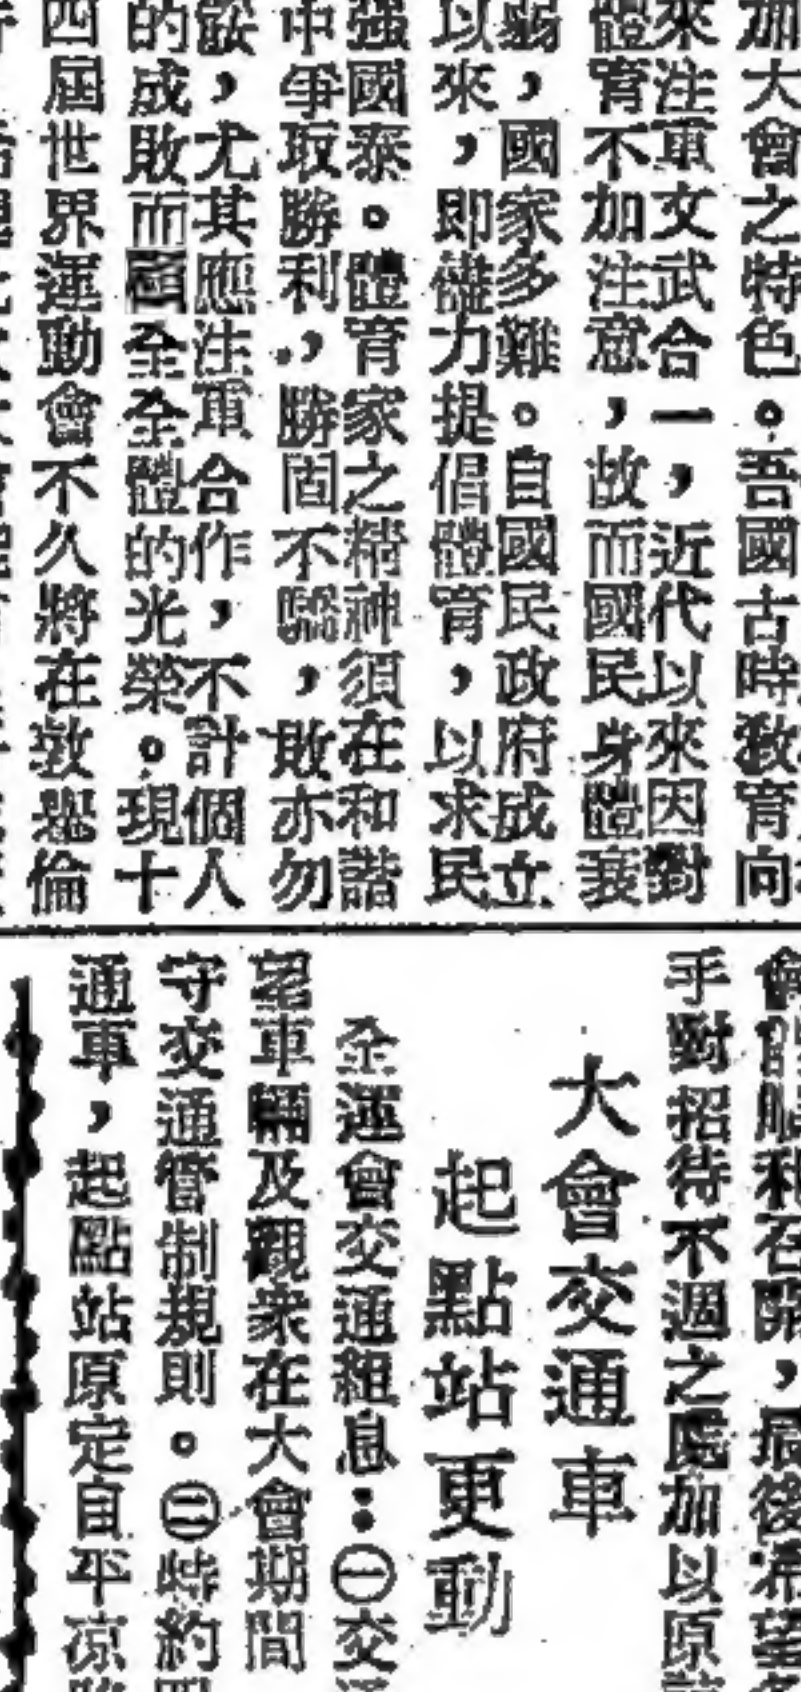 加大會之特色。吾國古時教育向
來注重文武合一，近代以來因對
體育不加注意，故而國民身體衰
弱，國家多難。自國民政府成立
以來，即儘力提倡體育，以求民
強國泰。體育家之精神須在和諧
中爭取勝利，勝固不驕，敗亦勿
餒，尤其應注重合作，不計個人
的成敗而顧全全體的光榮。現十
四屆世界運動會不久將在敦倫
利召開，最後希望
手對招待不週之處加以原
大會交通車
起點站更動
全運會交通組息：㊀交
望車輛及觀衆在大會期間
守交通管制規則。㊁特約
通車，起點站原定自平凉